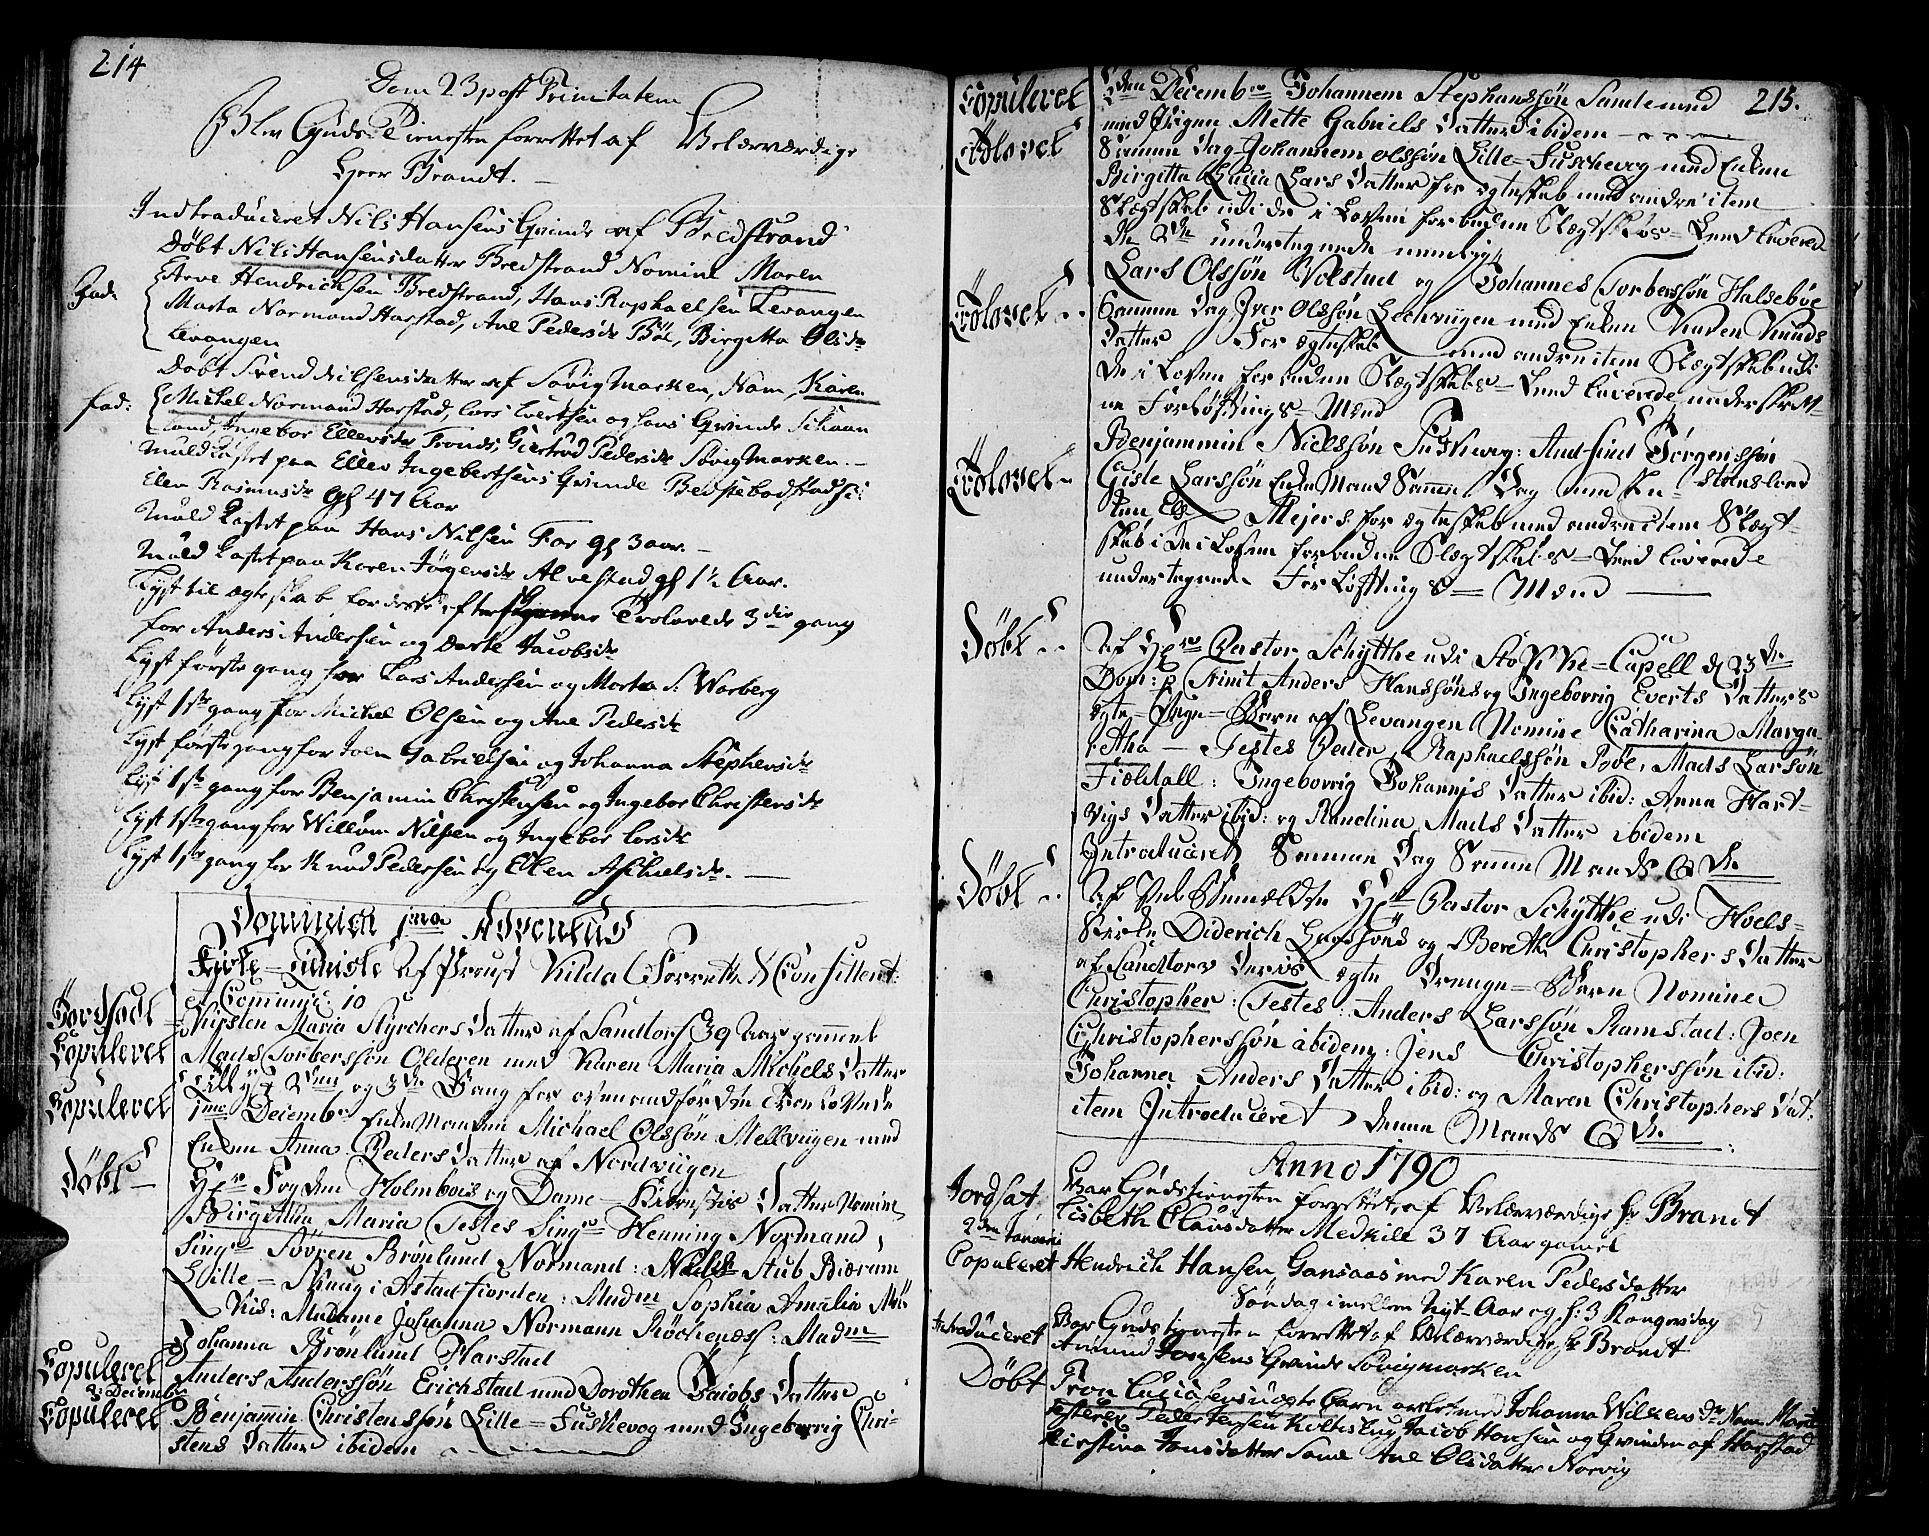 214
Dom 23 post Trinitatem
Blev Guds Tienesten forrettet af Velærværdige
Herr Brandt. —
Introduceret Nils Hansens Qvinde af Bredstrand
Døbt Nils Hansensdatter Bredstrand Nomine Maren
Fad: Hendrichsen Bredstrand, Hans Raphaelsen Levangen
Marta Normand Harstad, Ane Pedersdr Böe, Birgitta Olsdr
Levangen
Døbt Svend Nilsensdatter af Sövigmarken, Nom, Karen
fad: Michel Normand Harstad, Lars Evertsen og hans Qvinde
Ingebor Ellevsdr Tronds, Giertrud Pedersdr Sövigmarken. —
Muldkastet paa Ellev Ingebertsens Qvinde
Elen Rasmusdr gl 47 Aar
Muld kastet paa Hans Nilsen gl 3 aar. —
Muld kastet paa Karen Jörgensdr Alvestad gl 1½ Aar.
Lyst til ægteskab for desse efter Trolovede 3die gang
for Anders Andersen og Dorte Jacobsdr
Lyst förste gang for Lars Andersen og Marta S: Warberg
Lyst 1ste gang for Michel Olsen og Ane Pedersdr
Lyst förste gang for Joen Gabrielsen og Johanna Stephensdr
Lyst 1ste gang for Benjamin Christensen og Ingebor Christensdr
Lyst 1ste gang for Willum Nilsen og Ingebor Larsdr
Lyst 1ste gang for Knud Pedersen og Elen Aschelsdr. —
Dominica 1ma Adventus
Trofte-Kirke af Proust Kildal Forrettet
et Communic: 10
Jordfæst Kirsten Maria Styrchers Datter af Sandtorf 39 Aar gammel
Copuleret Mads Torberssön Olderen med Karen Maria Michels Datter
Lyst 2den og 3die Gang for ovenanförde Trolovede
Copuleret 1mo Decembr Enkemanden Michael Olssön Mellviigen med
Enken Anna Peders Datter af Nordviigen
Døbt — Hr Fogden Holmboes og Dame Datter Nomine
Birgitha Maria Testes Sing: Henning Normand,
Singr Sövren Brönlund Normand: Niels Stub Biærum
Lille- i Astadfiorden: Madm Sophia Amalia
Madame Johanna Normann Röckenæss: Madm
Johanna Brönlund Harstad
Copuleret Anders Anderssön Erichstad med Dorothea Jacobs Datter
2 December
Copuleret Benjamin Christenssön Lille-Fuskevog med Ingeborrig Chri-
stens Datter ibidem
215.
Copuleret den Decembr Johannem Stephanssön Sandemed
med Pigen Mette Gabriels Datter ibidem
Trolovet Samme Dag Johannem Olssön Lille-Fuschevog med Enken
Birgitta Lucia Lars Datter for ægteskab med andre item
Slægtskab udi de i Loven forbudne Slægtskabs-Leed Caverede
de 2de undertegnede nemlig
Lars Olssön Volstad og Johannes Torberssön Halseböe
Trolovet Samme Dag Iver Olssön Lechviigen med Enken Karen Knuds
Datter For ægteskab med andre item Slægtskab udi
de i Loven forbudne Slægtskabs-Leed Caverede underskrev-
ne Forlöftnings-Mænd
Benjammin Nielssön Fuskevog: Amtsind Jörgenssön
Trolovet Gisle Larssön Enke Mand Samme Dag med En-
ken Else Mejers for ægteskab med andre item Slægt-
skab i de i Loven forbudne Slægtskabs-Leed Caverede
undertegnede Forlöftnings-Mænd
Døbt Af Hr Pastor Schytthe udi Stokke-Capell d 23de
Dom: p Trinit Anders Hanssöns og Ingeborrig Everts Datters
ægte-Pige-Barn af Levangen Nomine Catharina Marga-
retha — Testes Peder Raphaelssön Böe, Mads Larssön
Fieldall: Ingeborrig Johannis Datter ibid: Anna Hart-
vigs Datter ibid: og Randina Mads Datter ibidem
Introduceret Samme Dag Samme Mands Qde
Døbt Af Vel Bemældte Hr Pastor Schytthe udi Hoels-
Kirke Diderich Larssöns og Berethe Christophers Datter
af Sandtorv Deris ægte Drenge-Barn Nomine
Christopher: Testes: Anders Larssön Ramstad: Joen
Christopherssön ibidem: Jens Christopherssön ibid:
Johanna Anders Datter ibid: og Maren Christophers Dat:
item Introduceret Denne Mands Qde
Anno 1790
Var Gudstienesten forrettet af Velærværdige hr Brandt
Jordsat Lisbeth Clausdatter Medkile 37 Aar gamel
2den Januari
Copuleret Hendrich Hansen Gansaas med Karen Pedersdatter
Søndag imellem Nyt-Aar og h: 3 Kongersdag
Var Gudstienesten forrettet af Velærværdige hr Brandt
Introduceret Amund Jonsens Qvinde Sövigmarken
Døbt Tron uægte Barn avlet med Johanna Wilkens Dr Nom Marit
Testere Peder Jacob Hansen og Qvinden af Harstad
Kirstina Jonsdatter Sand Ane Olsdatter Norvig